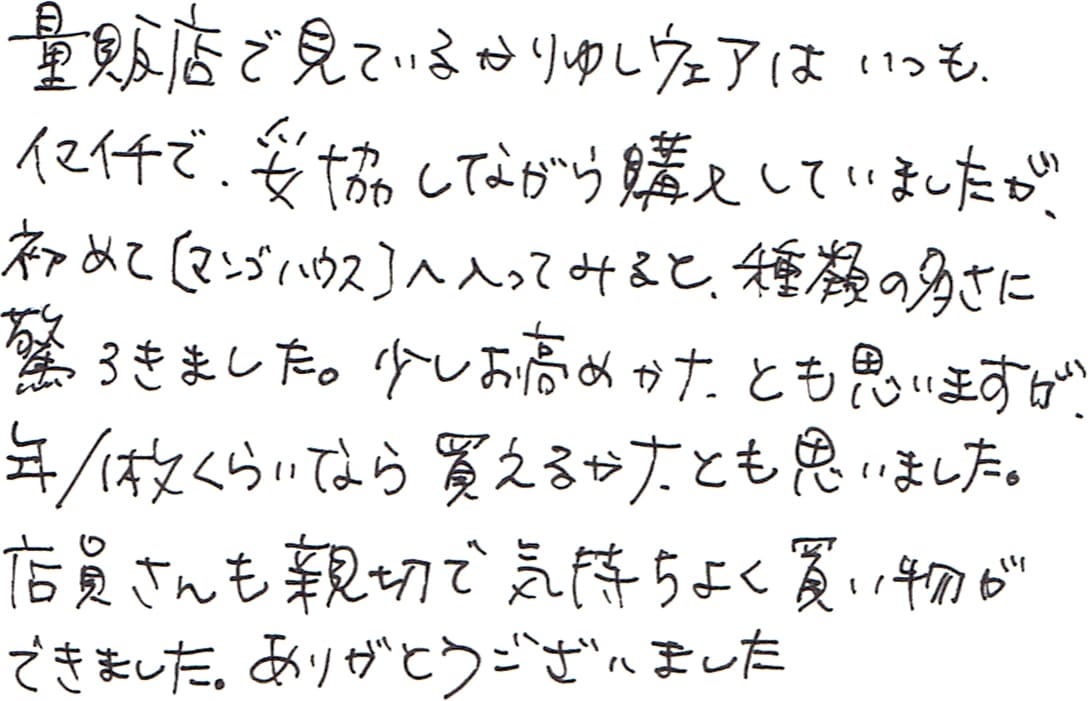 量販店で見ているかりゆしウェアは いつも、
イマイチで、妥協しながら購入していましたが、
初めて〔マンゴハウス〕へ入ってみると、種類の多さに
驚ろきました。少しお高めかナ、とも思いますが、
年/1枚くらいなら買えるかナ、とも思いました。
店員さんも親切で気持ちよく買い物が
できました。ありがとうございました